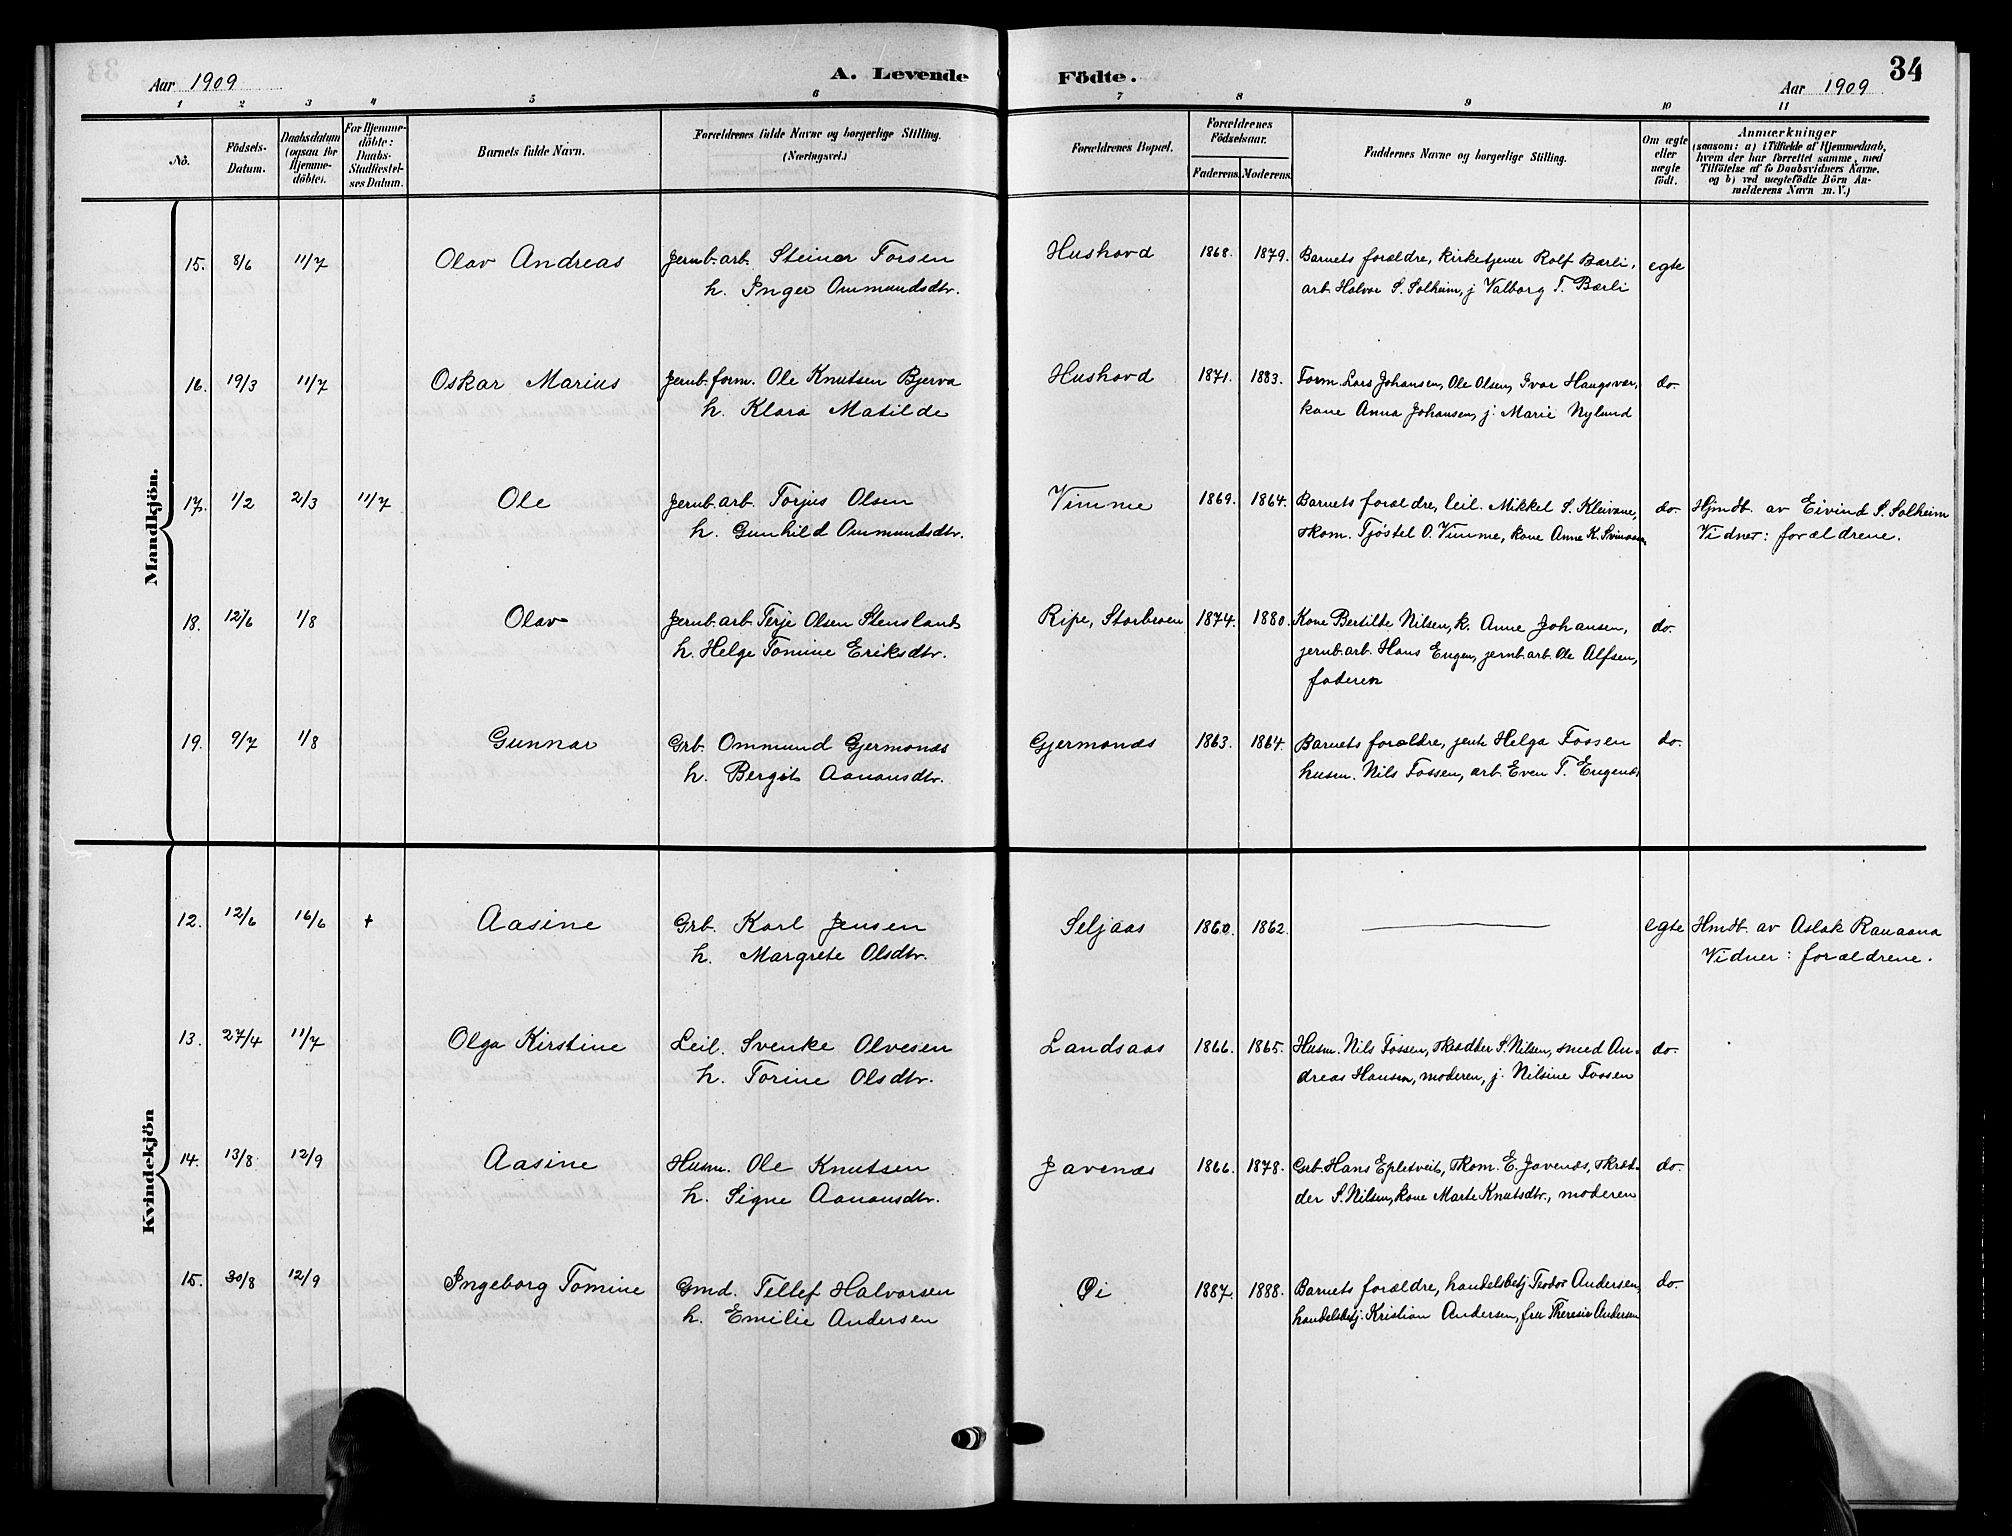 34
Aar 1909
A. Levende Födte.
Aar 1909
1 2 3 4 5 6 7 8 9 10 11
No.
Födsels-
Datum.
Daabsdatum
(ogsaa for
Hjemme-
döbte).
For Hjemme-
döbte:
Daabs-
Stadfæstel-
ses Datum.
Barnets fulde Navn.
Forældrenes fulde Navne og borgerlige Stilling.
(Næringsvei.)
Forældrenes Bopæl.
Forældrenes
Födselsaar.
Faderens. Moderens.
Faddernes Navne og borgerlige Stilling.
Om ægte
eller
uægte
født.
Anmærkninger
(saasom: a) i Tilfælde af Hjemmedaab,
hvem der har forrettet samme, med
Tilföielse af to Daabsvidners Navne.
og b) ved uægtefödte Börn An-
melderens Navn m. V.)
Mandkjön.
15. 8/6 11/7 Olav Andreas Jernb.arb. Steinar Torsen Hushovd 1868. 1879. Barnets forældre, kirketjener Rolf Bærli, egte
h. Inger Ommundsdtr. arb. Halvor S. Solheim, j Valborg T. Bærli
16. 19/3 11/7 Oskar Marius Jernb.form. Ole Knutsen Bjerva Hushovd 1871. 1883. Form. Lars Johansen, Ole Olsen, Ivar Haugsvær, do.
h. Klara Matilde kone Anna Johansen, j. Marie Nylund
17. 1/2 2/3 11/7 Ole Jernb.arb. Torjus Olsen Vimme 1869. 1864. Barnets forældre, leil. Mikkel S. Kleivene, do. Hjmdt. av Eivind S. Solheim
h. Gunhild Ommundsdtr. skom. Tjøstel O. Vimme, kone Anne K. Vidner: forældrene.
18. 12/6 1/8 Olav Jernb.arb. Terje Olsen Stensland Ripe, Storbroen 1874. 1880. Kone Bertilte Nilsen, k. Anne Johansen, do.
h. Helge Tomine Eriksdtr. jernb.arb. Hans Engen, jernb.arb. Ole Alfsen,
faderen
19. 9/7 1/8 Gunnar Grb. Ommund Gjermonæs Gjermonæs 1863. 1864. Barnets forældre, jente Helga Fossen do.
h. Bergit Aanonsdtr. husm. Nils Fossen, arb. Even T. Engenes
Kvindekjön
12. 12/6 16/6 + Aasine Grb. Karl Jensen Seljaas 1860. 1862. — egte Hmdt. av Aslak Ranaana
h. Margrete Olsdtr. Vidner: forældrene.
13. 27/4 11/7 Olga Kirstine Leil. Svenke Olvesen Landsaas 1866. 1865. Husm. Nils Fossen, skrædder S. Nilsen, smed An- do.
h. Torine Olsdtr. dreas Hansen, moderen, j. Nilsine Fossen
14. 13/8 12/9 Aasine Husm. Ole Knutsen Javenæs 1866. 1878. Grb. Hans Epletveit, skom. E. Javenæs, skræd- do.
h. Signe Aanonsdtr. der S. Nilsen, kone Marte Knutsdtr., moderen
15. 30/8 12/9 Ingeborg Tomine Gmd. Tellef Halvorsen Øi 1887. 1888. Barnets forældre, handelsbetj Teodor Andersen, do.
h. Emilie Andersen handelsbetj. Kristian Andersen, fru Andersen